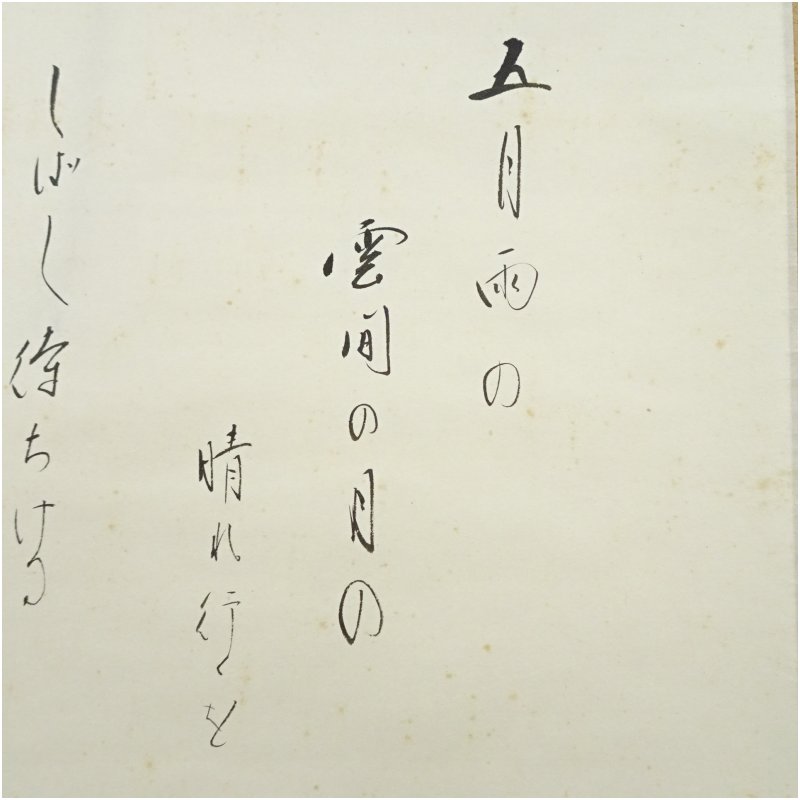 五月雨の
雲間の月の
晴れ行くを
しばし待ちける